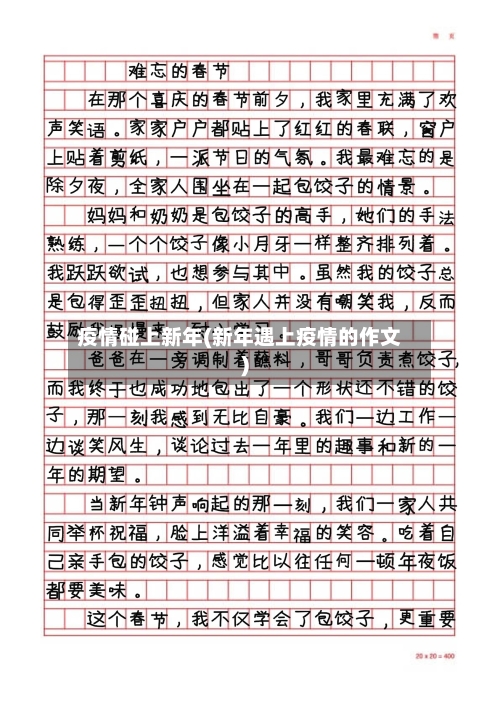 难忘的春节
在那个喜庆的春节前夕，我家里充满了欢
声笑语。家家户户都贴上了红红的春联，窗户
上贴着剪纸，一派节日的气氛。我最难忘的是
除夕夜，全家人围坐在一起包饺子的情景。
妈妈和奶奶是包饺子的高手，她们的手法
熟练，一个个饺子像小月牙一样整齐排列着。
我跃跃欲试，也想参与其中。虽然我的饺子总
是包得歪歪扭扭，但家人并没有嘲笑我，反而
鼓励我
疫情碰上新年(新年遇上疫情的作文
)
爸爸在一旁调制着蘸料，哥哥负责煮饺子，
而我终于也成功地包出了一个形状还不错的饺
子，那一刻我感到无比自豪。我们一边工作一
边谈笑风生，谈论过去一年里的趣事和新的一
年的期望。
当新年钟声响起的那一刻，我们一家人共
同举杯祝福，脸上洋溢着幸福的笑容。吃着自
己亲手包的饺子，感觉比以往任何一顿年夜饭
都要美味。
这个春节，我不仅学会了包饺子，更重要
20 x 20 = 400